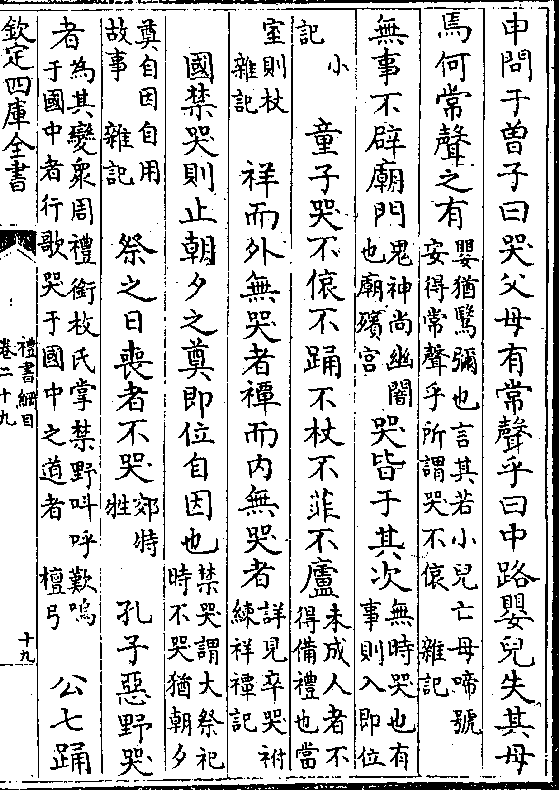 申問于曽子曰哭父母有常聲乎曰中路嬰兒失其母
焉何常聲之有嬰猶鷖彌也言其若小兒亡母啼號安得常聲乎所謂哭不偯雜記
無事不辟廟門鬼神尚幽闇也廟殯宫哭皆于其次無時哭也有事則入即位
小記童子哭不偯不踊不杖不菲不廬未成人者不得備禮也當
室則杖雜記祥而外無哭者禫而内無哭者詳見卒哭祔練祥禫記
國禁哭則止朝夕之奠即位自因也禁哭謂大祭祀時不哭猶朝夕
奠自因自用故事雜記祭之日喪者不哭郊特牲孔子惡野哭
者為其變衆周禮銜枚氏掌禁野叫呼歎嗚于國中者行歌哭于國中之道者檀弓公七踊
欽定四庫全書
禮書綱目
卷二十九
十九